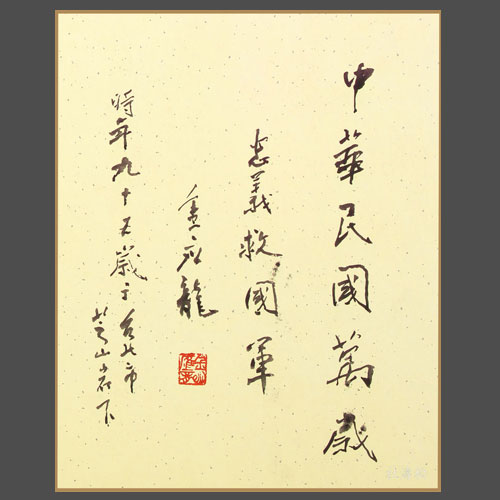 中華民國萬歲
忠義救國軍
应龍
時年九十五歲于台北市
芝山岩下